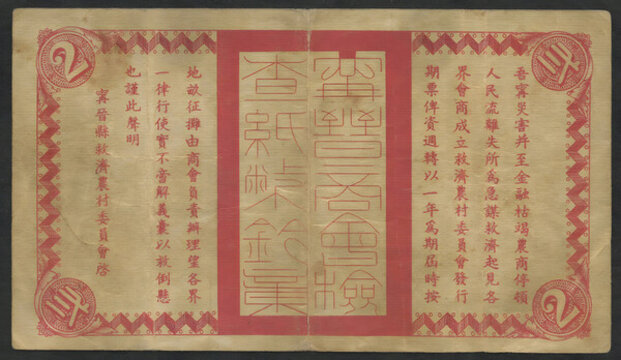 2
吾寗災害并至金融枯竭農商停頓
人民流離失所為急謀救濟起見各
界會商成立救濟農村委員會發行
期票俾資週轉以一年為期屆時按
寗晉商會檢
查紙幣
地畝征攤由商會負責辦理望各界
一律行使實不啻解義囊以救倒懸
也謹此聲明
寗晉縣救濟農村委員會啓
2